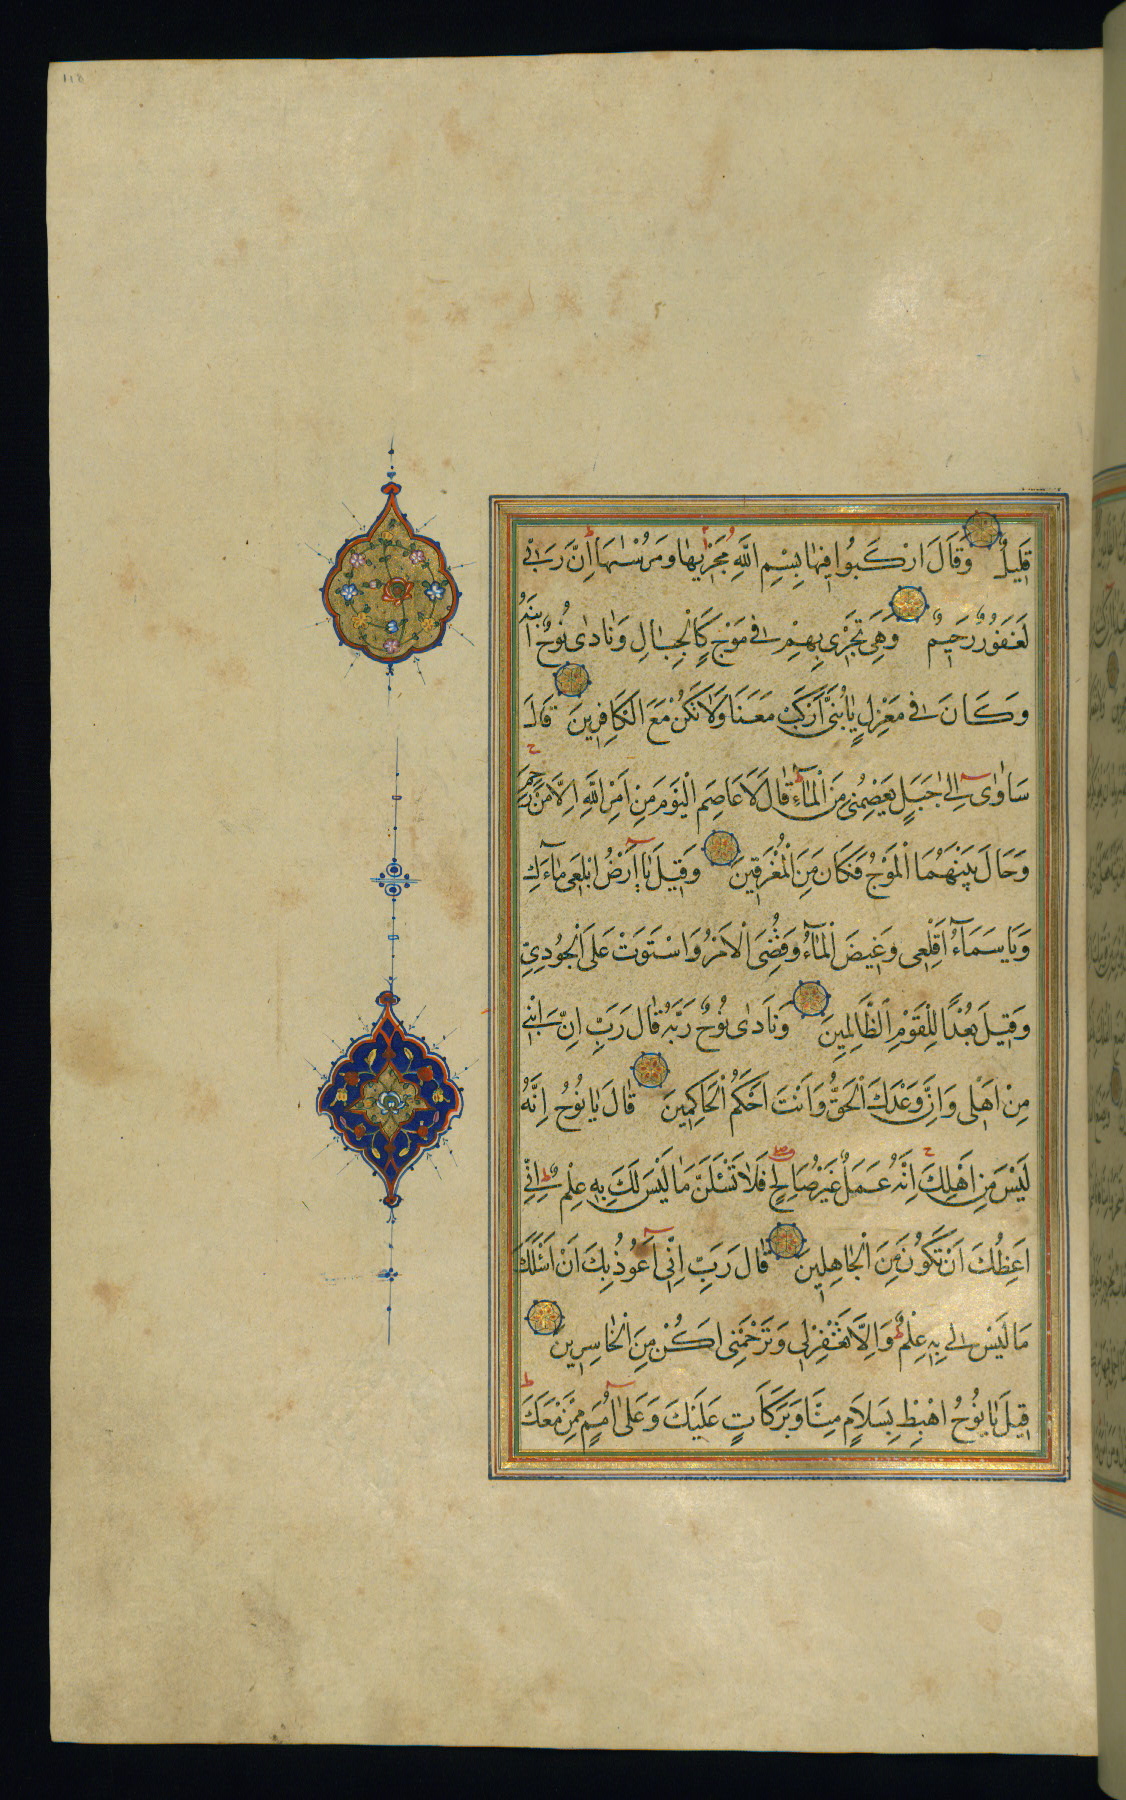 118
قَلِيلٌ وَقَالَ ارْكَبُوا فِيهَا بِسْمِ اللَّهِ مَجْرٰيهَا وَمَرْسٰيهَا اِنَّ رَبِّي
لَغَفُورٌ رَحِيمٌ وَهِيَ تَجْرِي بِهِمْ فِي مَوْجٍ كَالْجِبَالِ وَنَادٰى نُوحٌ ابْنَهُ
وَكَانَ فِي مَعْزِلٍ يَابُنَيَّ ارْكَبْ مَعَنَا وَلَا تَكُنْ مَعَ الْكَافِرِينَ قَالَ
سَاٰوٰى اِلٰى جَبَلٍ يَعْصِمُنِي مِنَ الْمَاءِ قَالَ لَا عَاصِمَ الْيَوْمَ مِنْ اَمْرِ اللَّهِ اِلَّا مَنْ رَحِمَ
وَحَالَ بَيْنَهُمَا الْمَوْجُ فَكَانَ مِنَ الْمُغْرَقِينَ وَقِيلَ يَا اَرْضُ ابْلَعِي مَاءَكِ
وَيَا سَمَاءُ اَقْلِعِي وَغِيضَ الْمَاءُ وَقُضِيَ الْاَمْرُ وَاسْتَوَتْ عَلَى الْجُودِيِّ
وَقِيلَ بُعْدًا لِلْقَوْمِ الظَّالِمِينَ وَنَادٰى نُوحٌ رَبَّهُ قَالَ رَبِّ اِنَّ ابْنِي
مِنْ اَهْلِي وَاِنَّ وَعْدَكَ الْحَقُّ وَاَنْتَ اَحْكَمُ الْحَاكِمِينَ قَالَ يَا نُوحُ اِنَّهُ
لَيْسَ مِنْ اَهْلِكَ اِنَّهُ عَمَلٌ غَيْرُ صَالِحٍ فَلَا تَسْئَلَنَّ مَا لَيْسَ لَكَ بِهِ عِلْمٌ اِنِّي
اَعِظُكَ اَنْ تَكُونَ مِنَ الْجَاهِلِينَ قَالَ رَبِّ اِنِّي اَعُوذُ بِكَ اَنْ اَسْئَلَكَ
مَا لَيْسَ لِي بِهِ عِلْمٌ وَاِلَّا تَغْفِرْ لِي وَتَرْحَمْنِي اَكُنْ مِنَ الْخَاسِرِينَ
قِيلَ يَا نُوحُ اهْبِطْ بِسَلَامٍ مِنَّا وَبَرَكَاتٍ عَلَيْكَ وَعَلٰى اُمَمٍ مِمَّنْ مَعَكَ